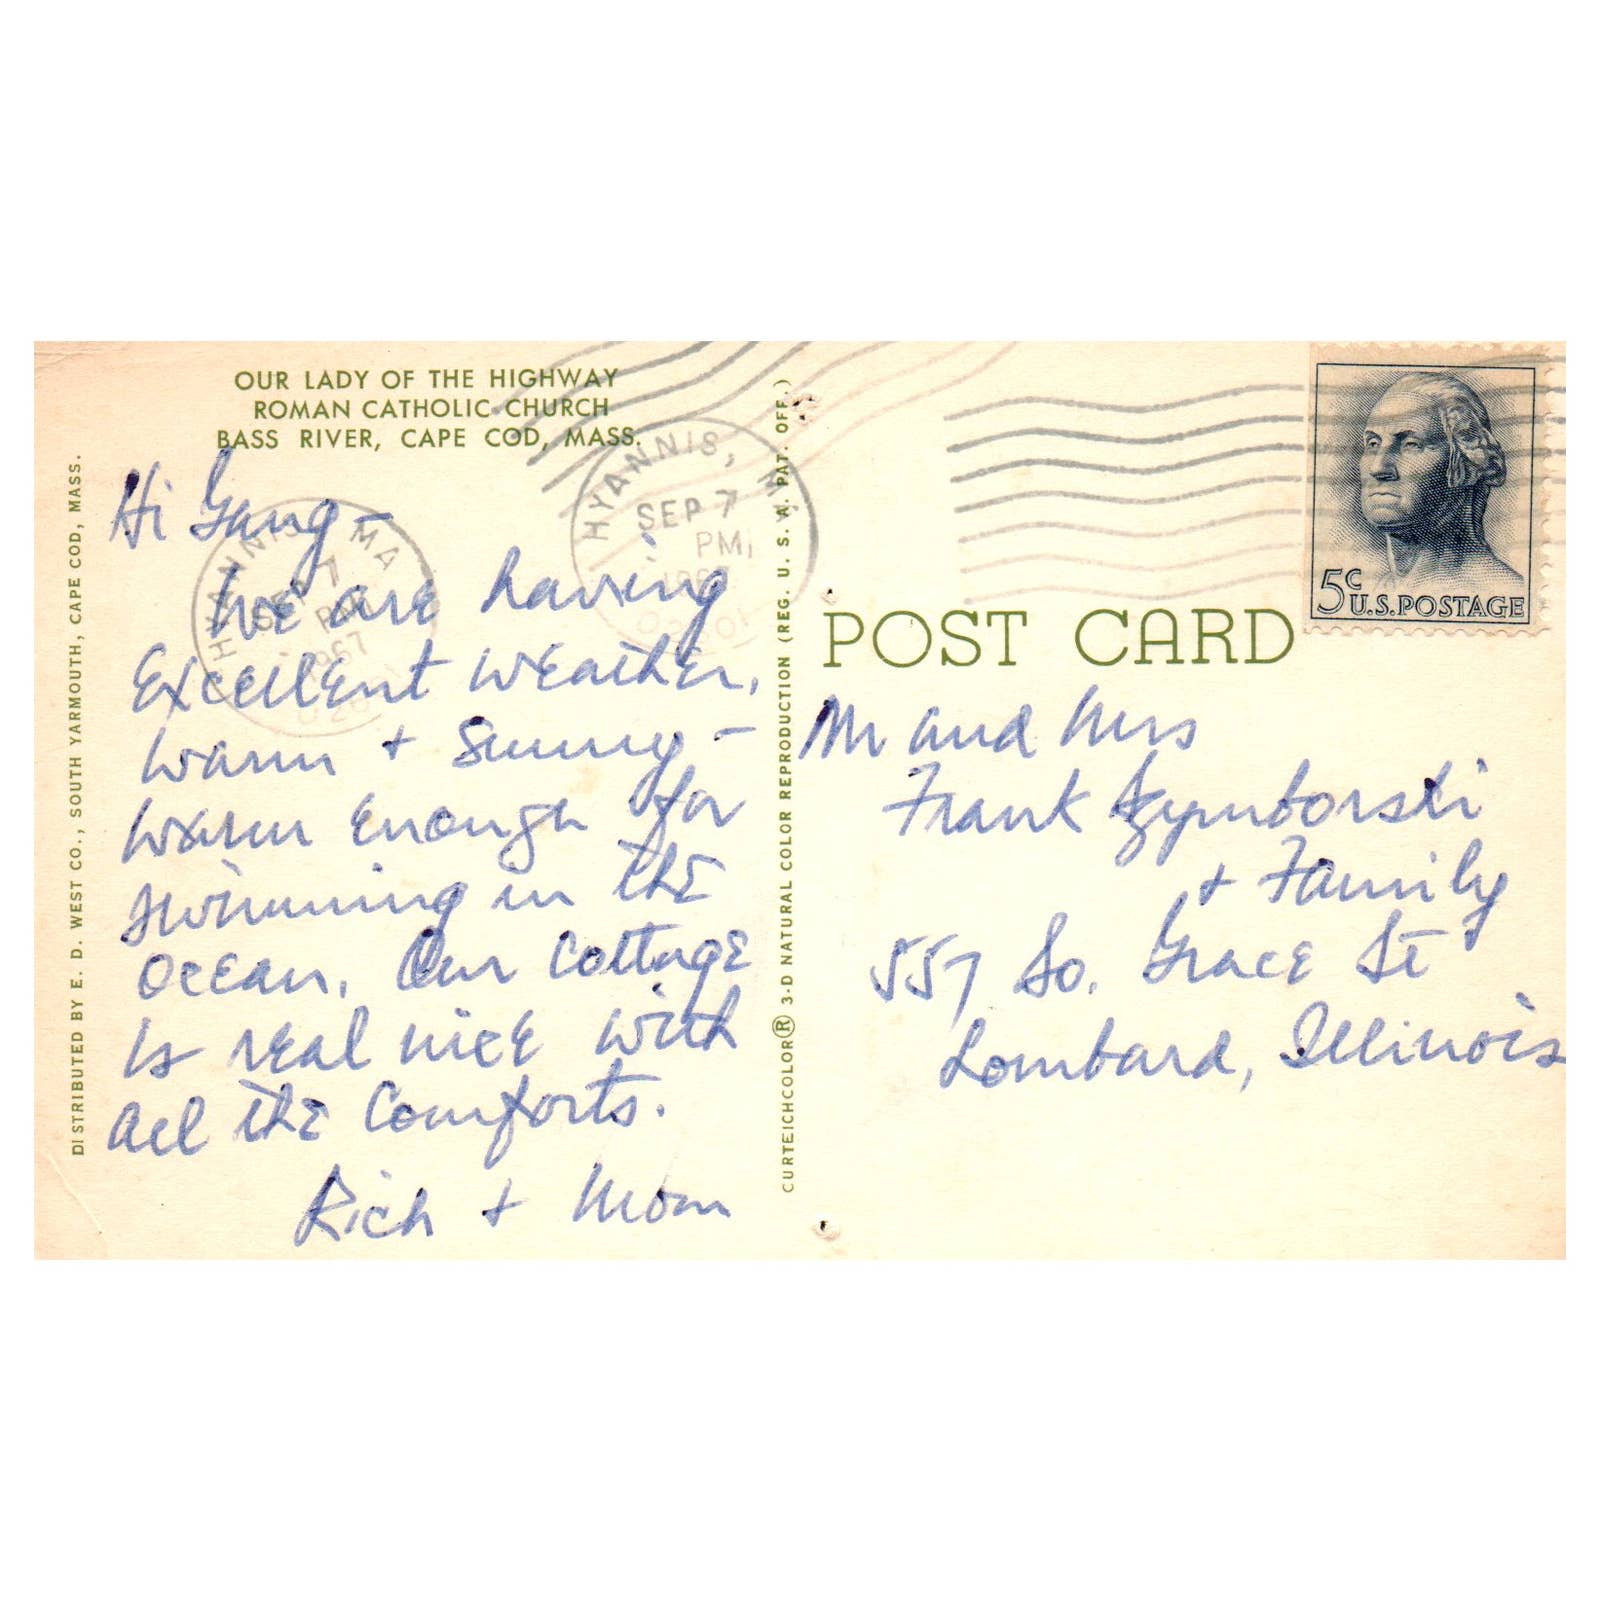 OUR LADY OF THE HIGHWAY
ROMAN CATHOLIC CHURCH
BASS RIVER, CAPE COD, MASS.
DISTRIBUTED BY E. D. WEST CO., SOUTH YARMOUTH, CAPE COD, MASS.
Hi Gang –
We are having
Excellent weather,
warm + Sunny –
warm enough for
swimming in the
Ocean. Our Cottage
is real nice with
all the Comforts.
Rich + Mom
HYANNIS, MA
SEP 7
PM
1967
HYANNIS, M
SEP 7
PM
CURTEICHCOLOR® 3-D NATURAL COLOR REPRODUCTION (REG. U. S. A. PAT. OFF.)
5c
U.S. POSTAGE
POST CARD
Mr and Mrs
Frank Szymborski
+ Family
557 So. Grace St
Lombard, Illinois